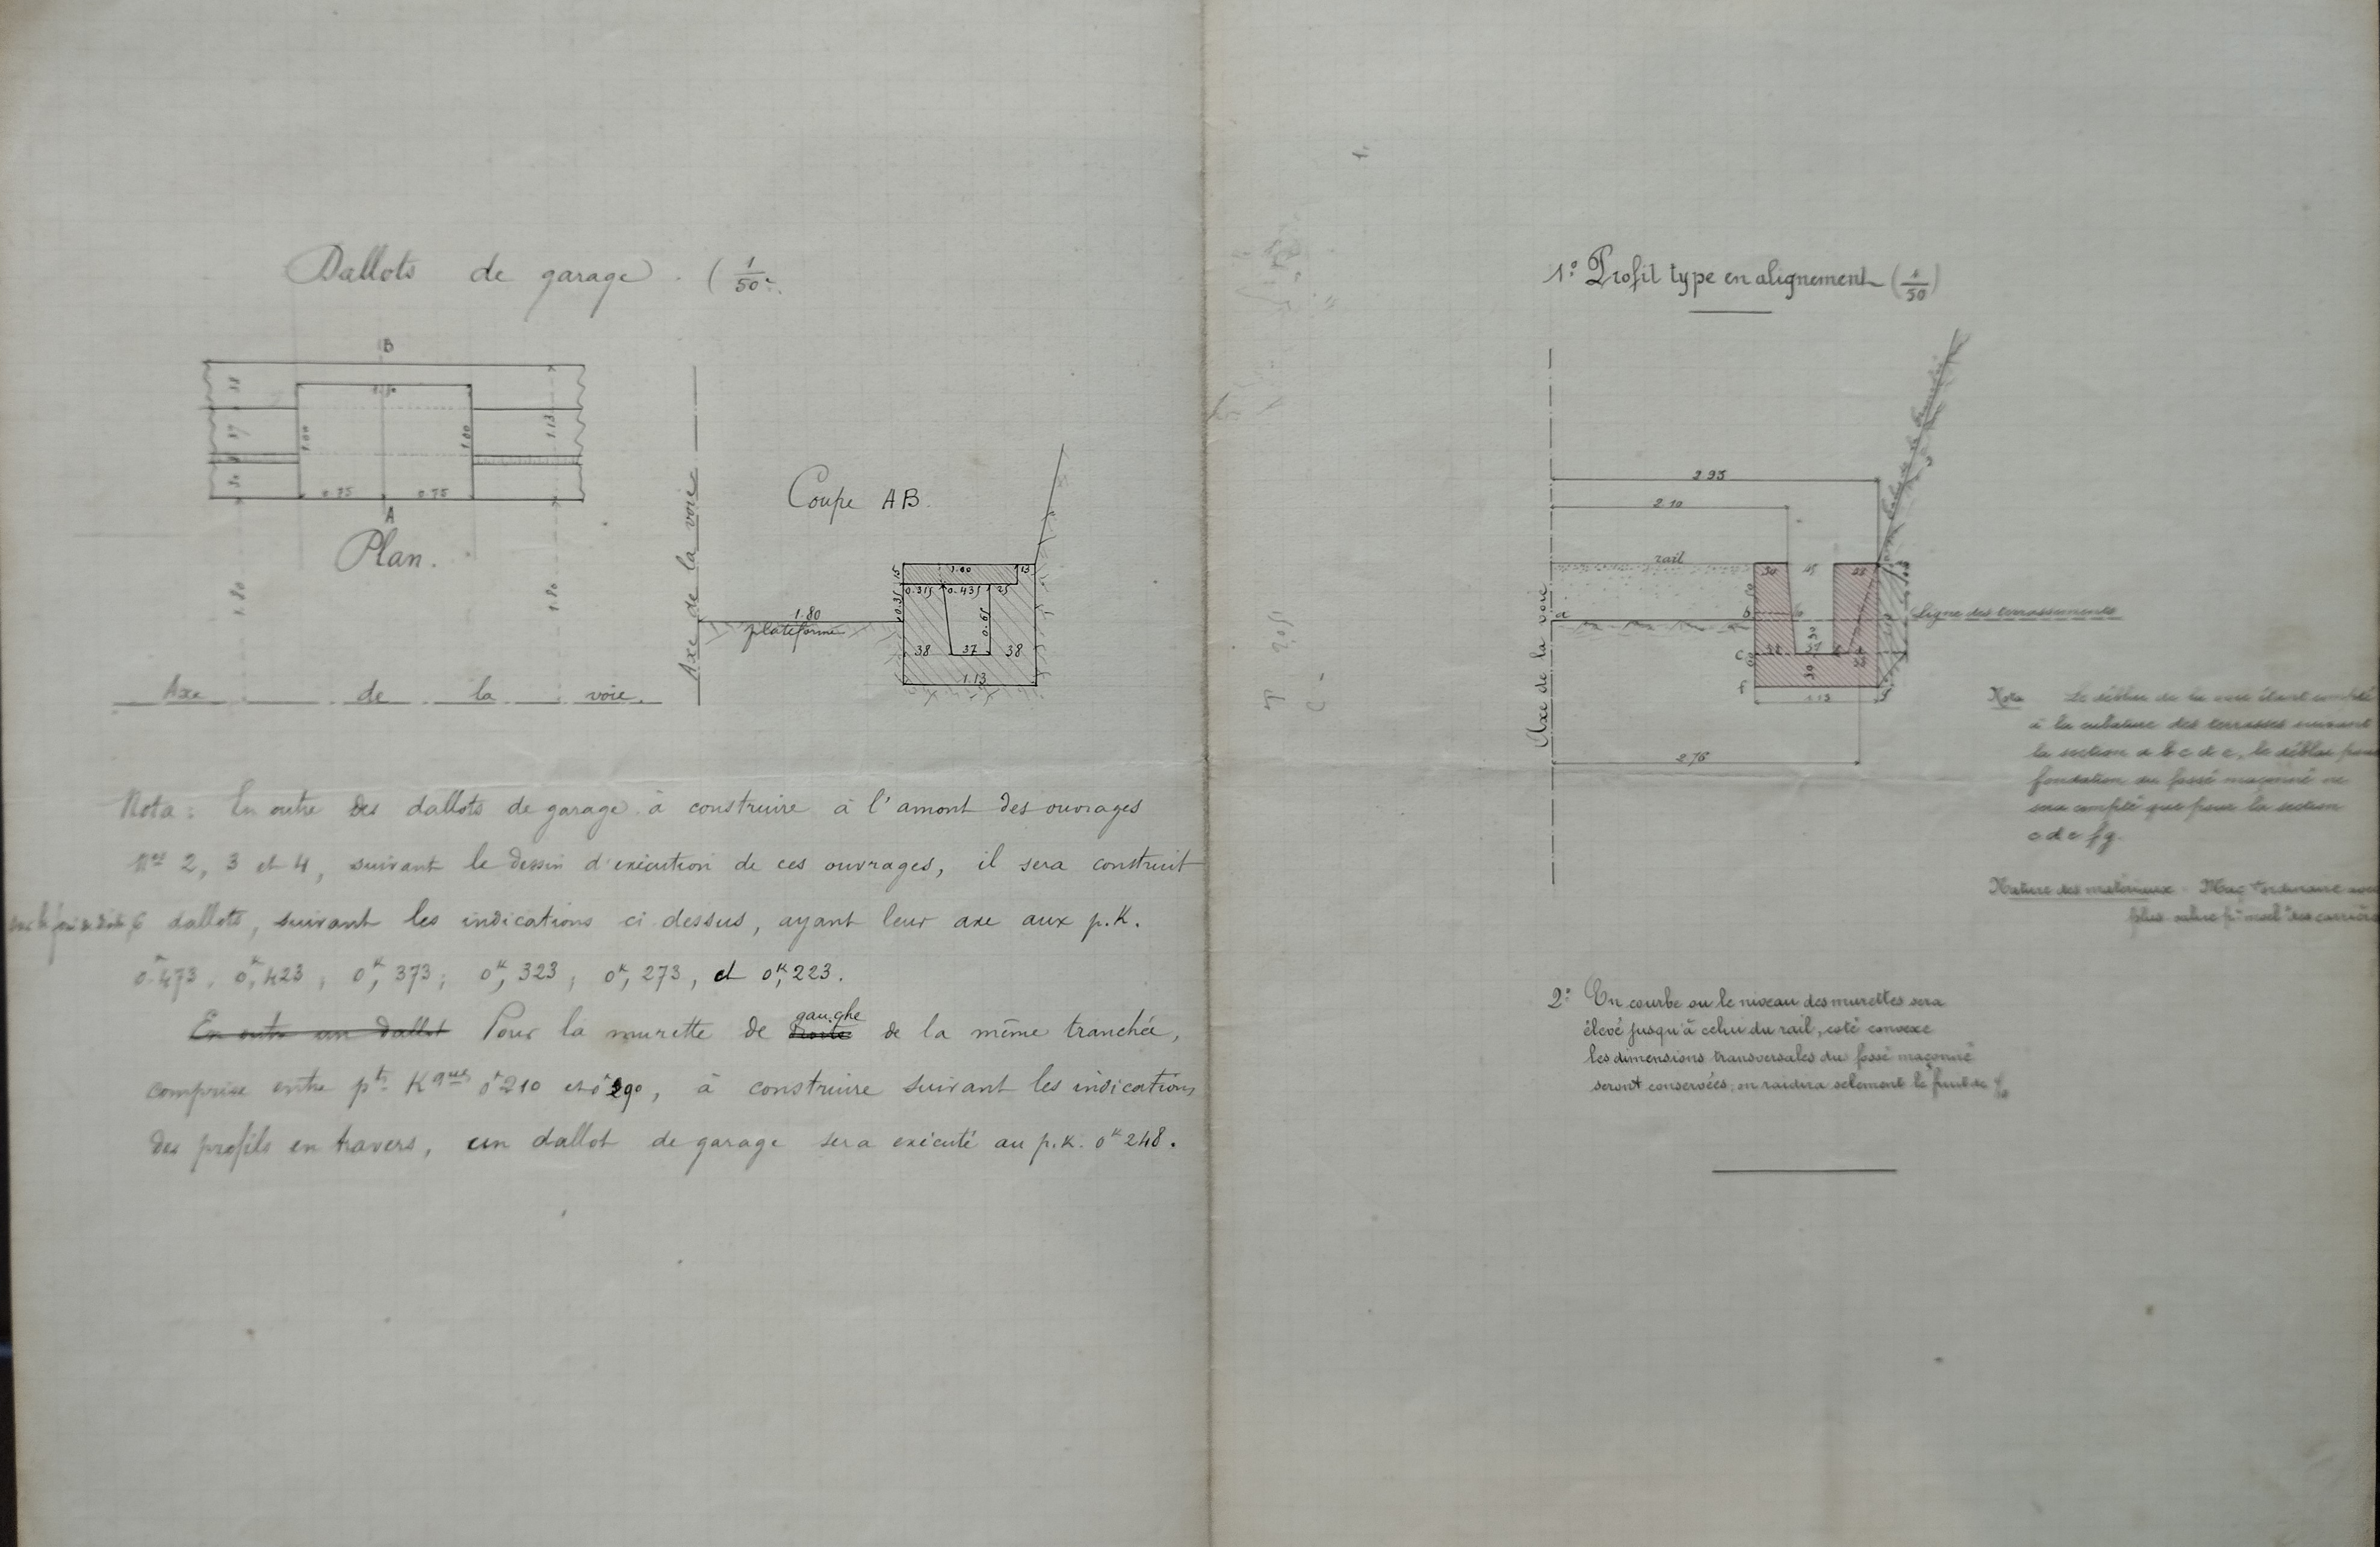 Dallots de garage. (1/50e.
B
38
1.50
37
1.00
1.00
1.13
30
0.75
0.75
A
Plan.
1.80
1.80
Axe de la voie.
Axe de la voie
Coupe AB.
1.00
13
0.35
0.315
0.435
25
1.80
plateforme
0.65
38
37
38
1.13
Nota: En outre des dallots de garage à construire à l'amont des ouvrages
Nos 2, 3 et 4, suivant le dessin d'exécution de ces ouvrages, il sera construit
6 dallots, suivant les indications ci-dessus, ayant leur axe aux p.K.
0k473, 0k,423; 0k,373; 0k,323; 0k,273, et 0k,223.
En outre un dallot Pour la murette de gauche droite de la même tranchée,
comprise entre pts Kques 0k210 et 0k290, à construire suivant les indications
des profils en travers, un dallot de garage sera exécuté au p.K. 0k248.
1o. Profil type en alignement (1/50)
2.95
2.10
rail
30
45
28
a
b
Ligne des terrassements
c
38
37
30
f
1.13
g
Axe de la voie
2.76
Nota Le déblai de la voie étant compté
à la cubature des terrasses suivant
la section a b c d e, le déblai pour
fondation du fossé maçonné ne
sera compté que pour la section
c d e f g.
Nature des matériaux Maç ordinaire avec
2o. En courbe ou le niveau des murettes sera
élevé jusqu'à celui du rail, coté convexe
les dimensions transversales du fossé maçonné
seront conservées; on raidira selement le fruit de